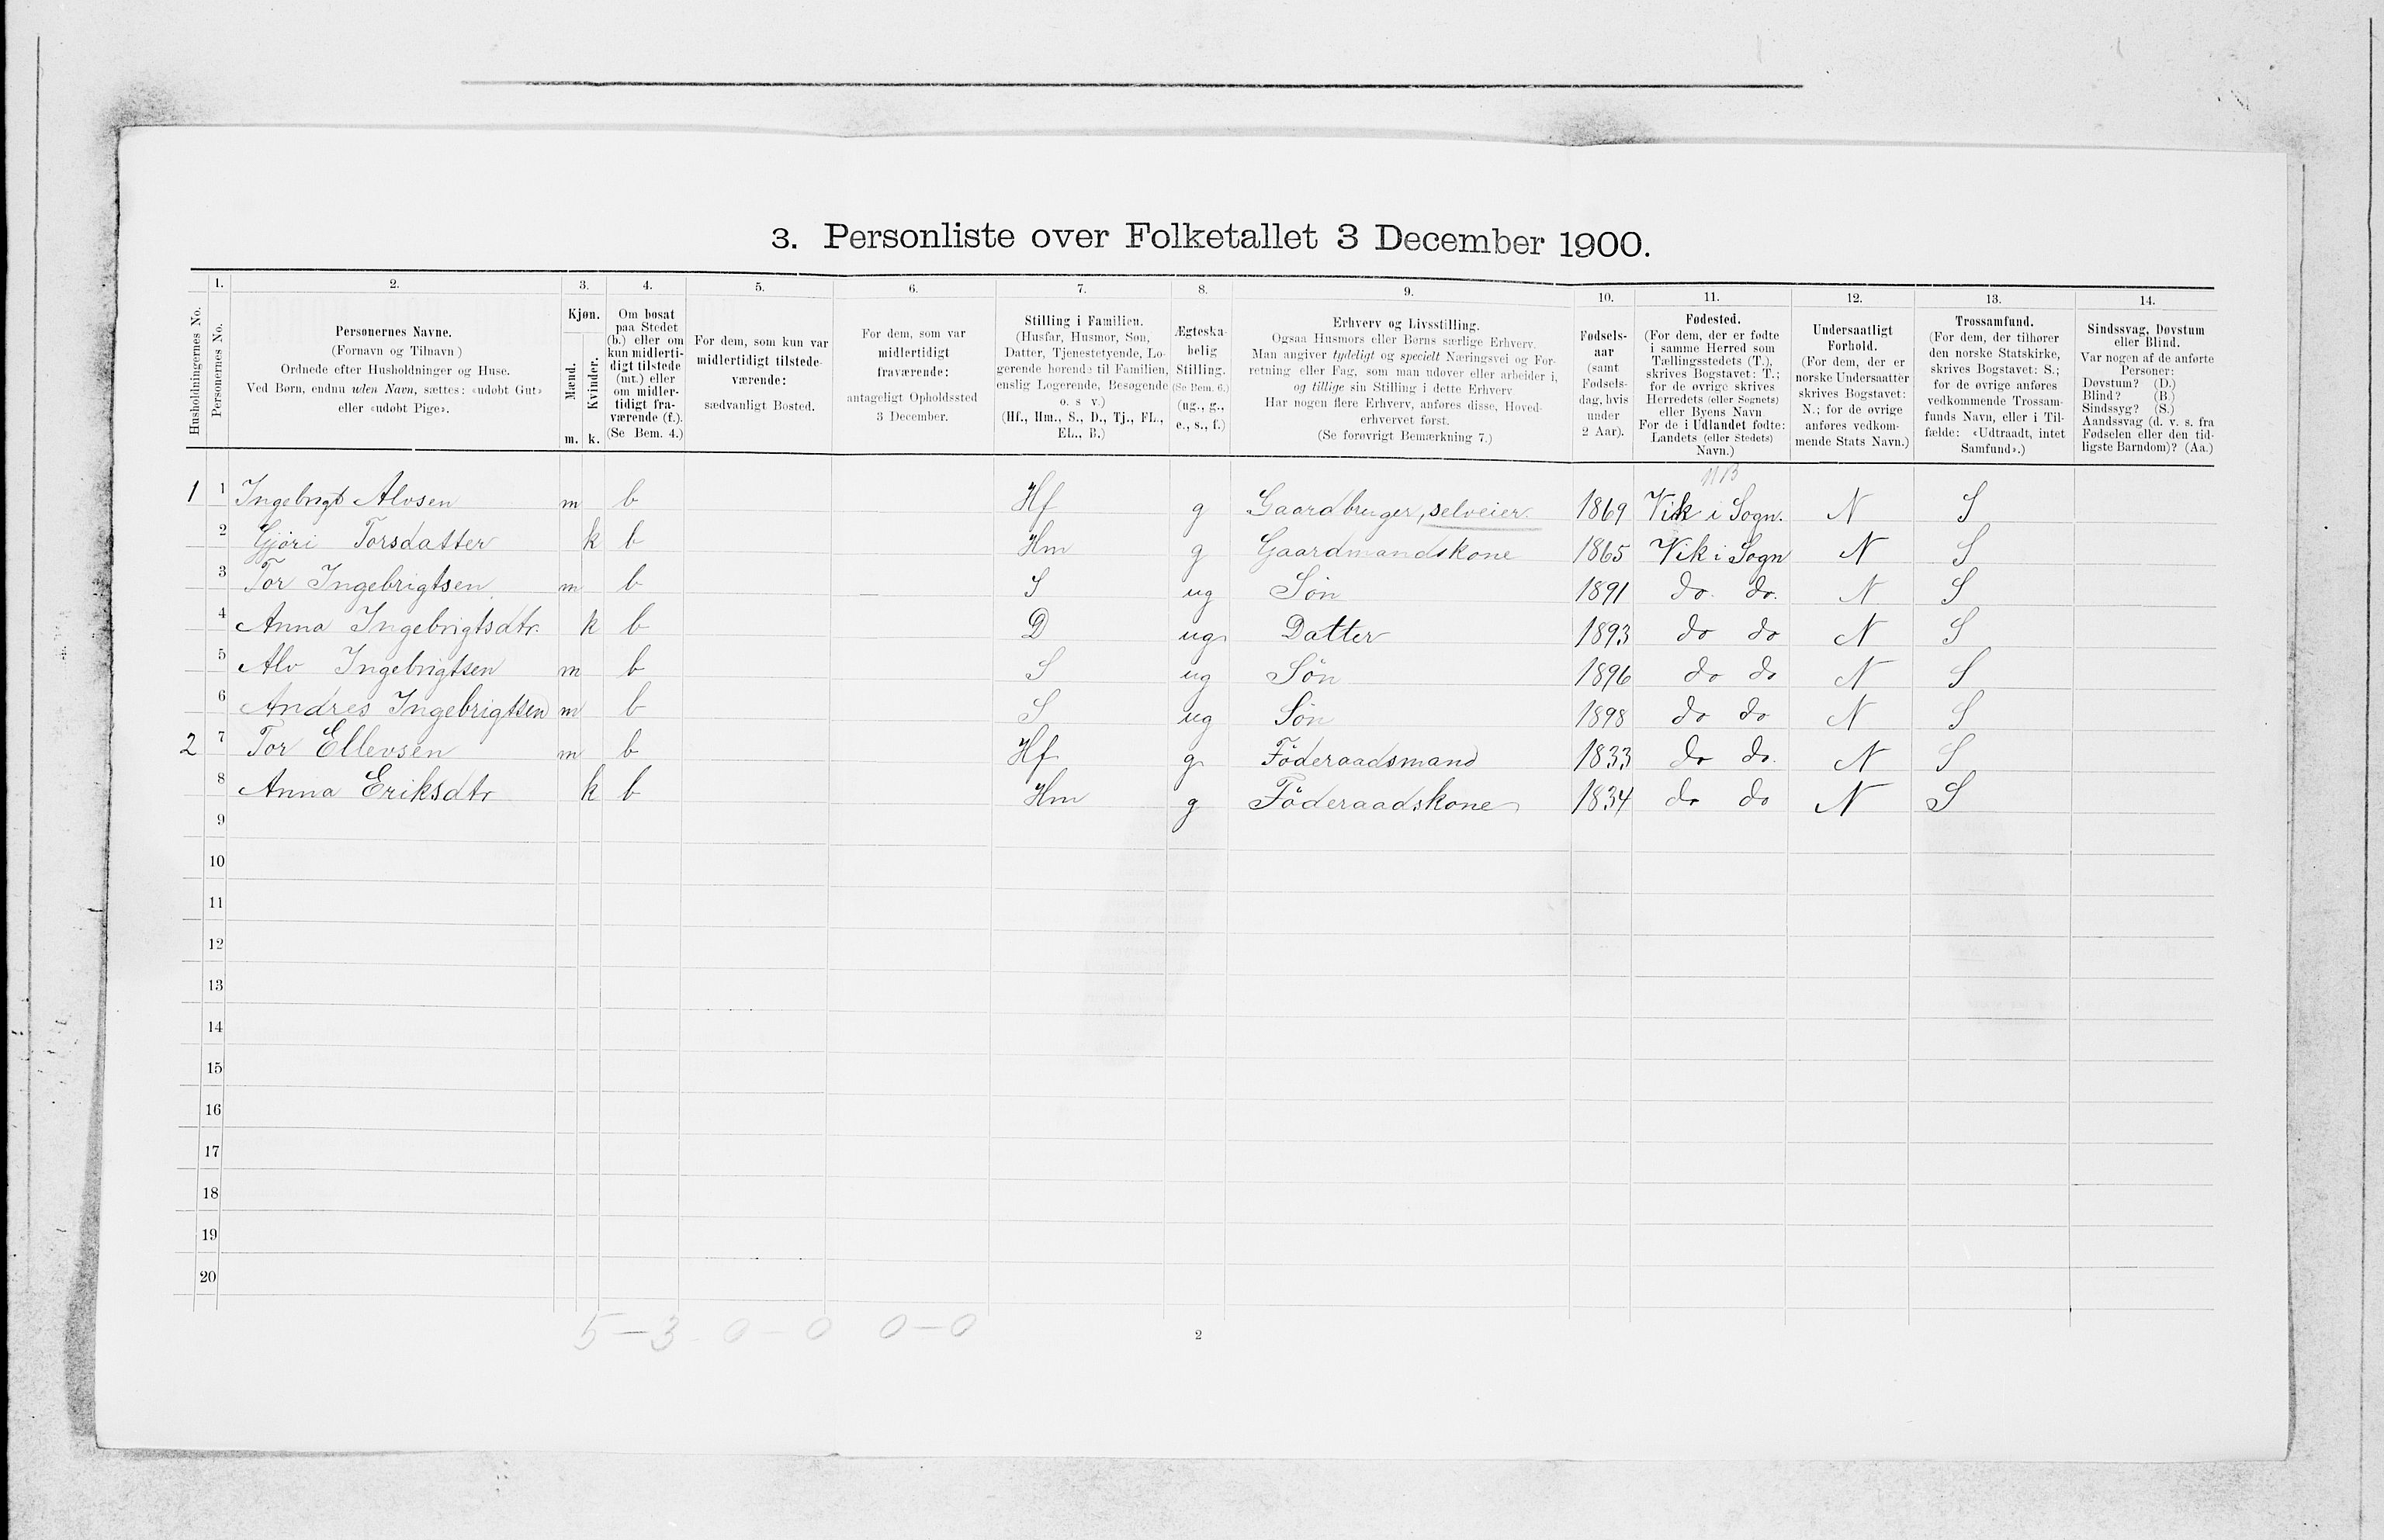 3. Personliste over Folketallet 3 December 1900.
Husholdningernes No.
1.
Personernes No.
2.
Personernes Navne.
(Fornavn og Tilnavn)
Ordnede efter Husholdninger og Huse.
Ved Børn, endnu uden Navn, sættes: «udøbt Gut»
eller «udøbt Pige».
3.
Kjøn.
Mænd.
Kvinder.
m. k.
4.
Om bosat
paa Stedet
(b.) eller om
kun midlerti-
digt tilstede
(mt.) eller
om midler-
tidigt fra-
værende (f.).
(Se Bem. 4.)
5.
For dem, som kun var
midlertidigt tilstede-
værende:
sædvanligt Bosted.
6.
For dem, som var
midlertidigt
fraværende:
antageligt Opholdssted
3 December.
7.
Stilling i Familien.
(Husfar, Husmor, Søn,
Datter, Tjenestetyende, Lo-
gerende hørende til Familien,
enslig Logerende, Besøgende
o. s v.)
(Hf., Hm., S., D., Tj., FL.,
EL., B.)
8.
Ægteska-
belig
Stilling.
(Se Bem. 6.)
(ug., g.,
e., s., f.)
9.
Erhverv og Livsstilling.
Ogsaa Husmors eller Børns særlige Erhverv.
Man angiver tydeligt og specielt Næringsvei og For-
retning eller Fag, som man udøver eller arbeider i,
og tillige sin Stilling i dette Erhverv
Har nogen flere Erhverv, anføres disse, Hoved-
erhvervet først.
(Se forøvrigt Bemærkning 7.)
10.
Fødsels-
aar
(samt
Fødsels-
dag, hvis
under
2 Aar).
11.
Fødested.
(For dem, der er fødte
i samme Herred som
Tællingsstedets (T.),
skrives Bogstavet: T.;
for de øvrige skrives
Herredets (eller Sognets)
eller Byens Navn
For de i Udlandet fødte:
Landets (eller Stedets)
Navn.)
12.
Undersaatligt
Forhold.
(For dem, der er
norske Undersaatter
skrives Bogstavet:
N.; for de øvrige
anføres vedkom-
mende Stats Navn.)
13.
Trossamfund.
(For dem, der tilhører
den norske Statskirke,
skrives Bogstavet: S.;
for de øvrige anføres
vedkommende Trossam-
funds Navn, eller i Til-
fælde: «Udtraadt, intet
Samfund».)
14.
Sindssvag, Døvstum
eller Blind.
Var nogen af de anførte
Personer:
Døvstum? (D.)
Blind? (B.)
Sindssyg? (S.)
Aandssvag (d. v. s. fra
Fødselen eller den tid-
ligste Barndom)? (Aa.)
1 1 Ingebrigt Alvsen m b Hf g Gaardbruger, selveier. 1869 Vik i Sogn. N S
2 Gjøri Torsdatter k b Hm g Gaardmandskone 1865 Vik i Sogn N S
3 Tor Ingebrigtsen m b S ug Søn 1891 do. do. N S
4 Anna Ingebrigtsdtr. k b D ug Datter 1893 do do N S
5 Alv Ingebrigtsen m b S ug Søn 1896 do do N S
6 Andres Ingebrigtsen m b S ug Søn 1898 do do N S
2 7 Tor Ellevsen m b Hf g Föderaadsmand 1833 do do. N S
8 Anna Eriksdtr k b Hm g Föderaadskone 1834 do do N S
9
10
11
12
13
14
15
16
17
18
19
20
5 – 3 0 – 0 0 – 0
2